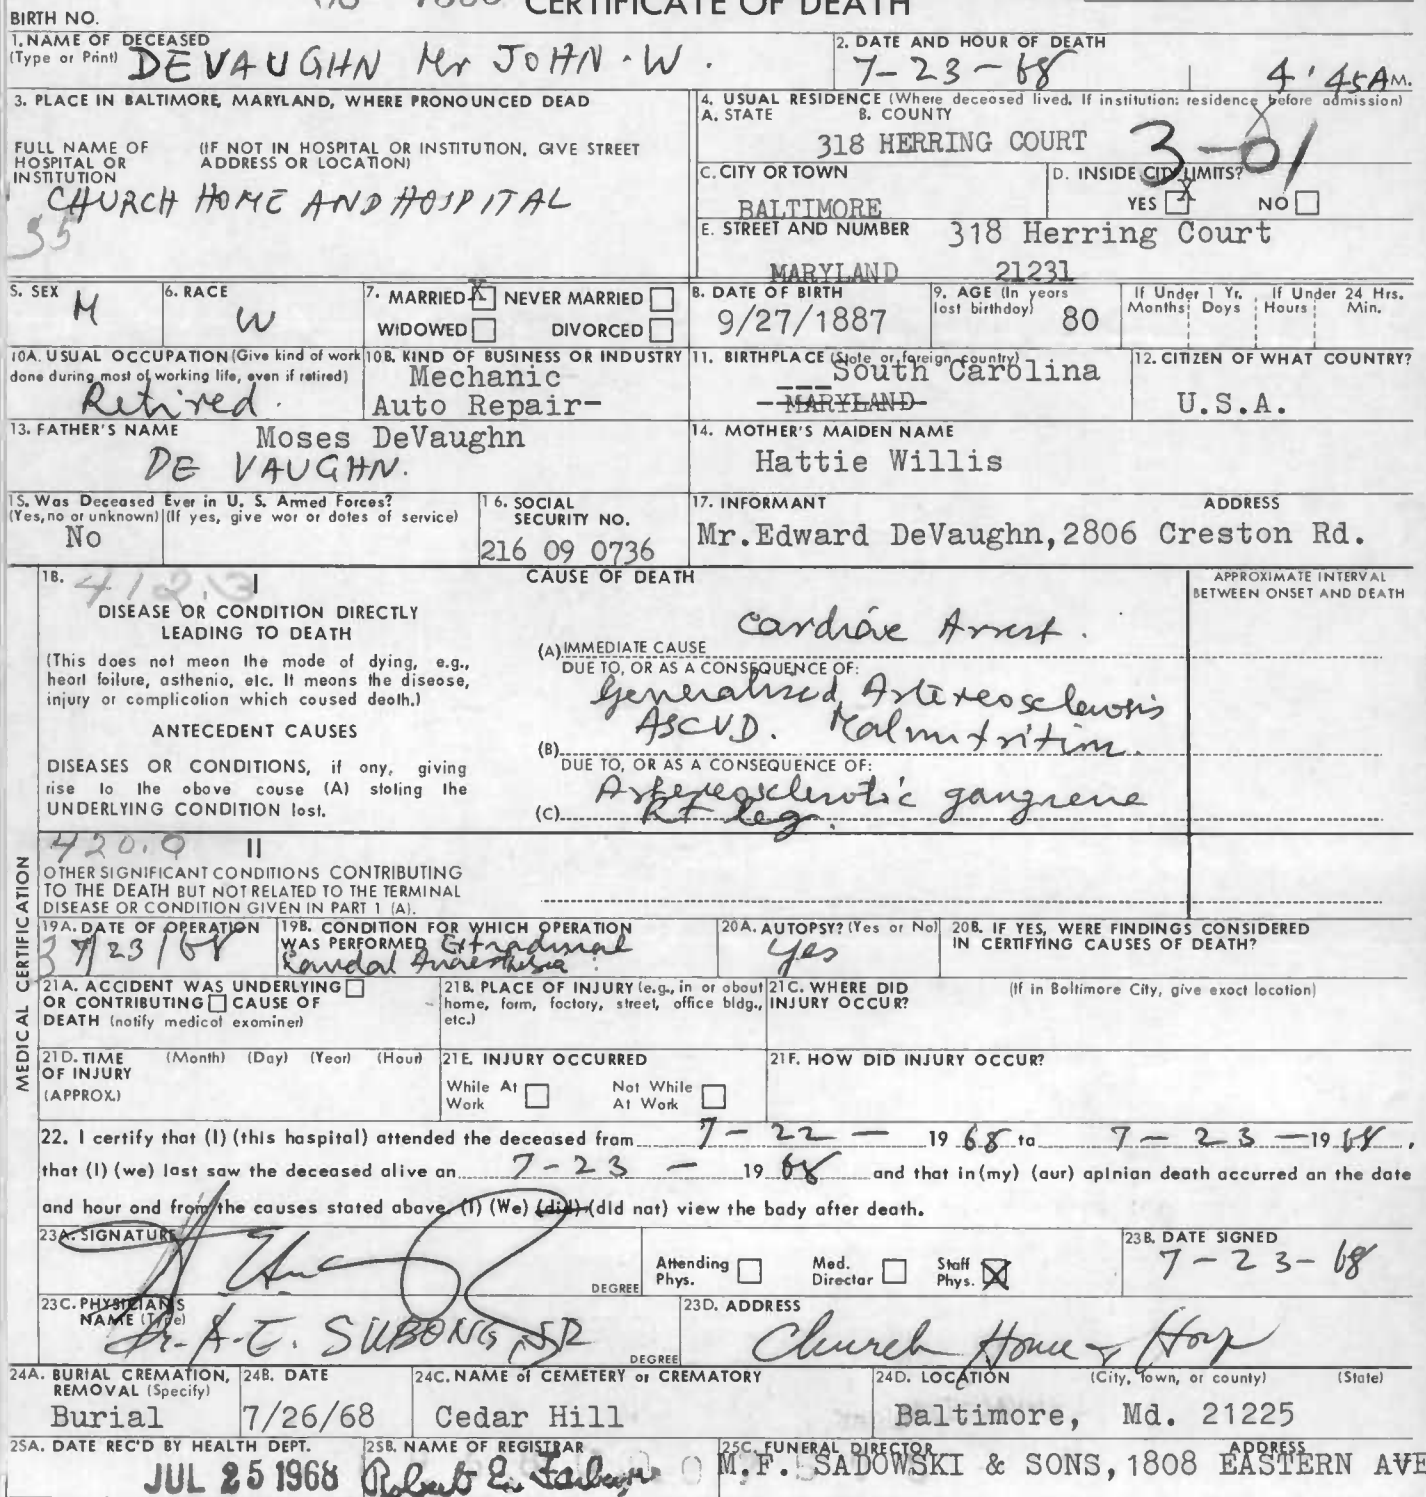 CERTIFICATE OF DEATH
BIRTH NO.
1. NAME OF DECEASED
(Type or Print) DEVAUGHN Mr JOHN. W.
2. DATE AND HOUR OF DEATH
7-23-68 4'45A M.
3. PLACE IN BALTIMORE, MARYLAND, WHERE PRONOUNCED DEAD
FULL NAME OF HOSPITAL OR INSTITUTION
(IF NOT IN HOSPITAL OR INSTITUTION, GIVE STREET ADDRESS OR LOCATION)
CHURCH HOME AND HOSPITAL
35
4. USUAL RESIDENCE (Where deceased lived. If institution: residence before admission)
A. STATE B. COUNTY
318 HERRING COURT 3-01
C. CITY OR TOWN
BALTIMORE
D. INSIDE CITY LIMITS?
YES X NO
E. STREET AND NUMBER 318 Herring Court
MARYLAND 21231
5. SEX
M
6. RACE
W
7. MARRIED X NEVER MARRIED
WIDOWED DIVORCED
8. DATE OF BIRTH
9/27/1887
9. AGE (In years last birthday) 80
If Under 1 Yr. Months Days
If Under 24 Hrs. Hours Min.
10A. USUAL OCCUPATION (Give kind of work done during most of working life, even if retired)
Retired.
10B. KIND OF BUSINESS OR INDUSTRY
Mechanic
Auto Repair-
11. BIRTHPLACE (State or foreign country)
South Carolina
MARYLAND
12. CITIZEN OF WHAT COUNTRY?
U.S.A.
13. FATHER'S NAME Moses DeVaughn
DE VAUGHN.
14. MOTHER'S MAIDEN NAME
Hattie Willis
15. Was Deceased Ever in U. S. Armed Forces?
(Yes, no or unknown) (If yes, give war or dates of service)
No
16. SOCIAL SECURITY NO.
216 09 0736
17. INFORMANT ADDRESS
Mr.Edward DeVaughn,2806 Creston Rd.
MEDICAL CERTIFICATION
18. 412.3 I
DISEASE OR CONDITION DIRECTLY
LEADING TO DEATH
(This does not mean the mode of dying, e.g.,
heart failure, asthenia, etc. It means the disease,
injury or complication which caused death.)
ANTECEDENT CAUSES
DISEASES OR CONDITIONS, if any, giving
rise to the above cause (A) stating the
UNDERLYING CONDITION last.
CAUSE OF DEATH
APPROXIMATE INTERVAL
BETWEEN ONSET AND DEATH
Cardiac Arrest.
(A) IMMEDIATE CAUSE
DUE TO, OR AS A CONSEQUENCE OF:
Generalised Artereosclerosis
ASCVD. Malnutrition.
(B)
DUE TO, OR AS A CONSEQUENCE OF:
Artereosclerotic gangrene
(C) RT leg.
420.0 II
OTHER SIGNIFICANT CONDITIONS CONTRIBUTING
TO THE DEATH BUT NOT RELATED TO THE TERMINAL
DISEASE OR CONDITION GIVEN IN PART 1 (A).
19A. DATE OF OPERATION
7/23/68
19B. CONDITION FOR WHICH OPERATION
WAS PERFORMED
Caudal Anaesthesia
20A. AUTOPSY? (Yes or No)
yes
20B. IF YES, WERE FINDINGS CONSIDERED
IN CERTIFYING CAUSES OF DEATH?
21A. ACCIDENT WAS UNDERLYING
OR CONTRIBUTING CAUSE OF
DEATH (notify medical examiner)
21B. PLACE OF INJURY (e.g., in or about
home, farm, factory, street, office bldg.,
etc.)
21C. WHERE DID INJURY OCCUR?
(If in Baltimore City, give exact location)
21D. TIME OF INJURY (APPROX.)
(Month) (Day) (Year) (Hour)
21E. INJURY OCCURRED
While At Work Not While At Work
21F. HOW DID INJURY OCCUR?
22. I certify that (I) (this hospital) attended the deceased from 7-22- 19 68 to 7-23-19 68,
that (I) (we) last saw the deceased alive on 7-23- 19 68 and that in (my) (our) opinion death occurred on the date
and hour and from the causes stated above. (I) (We) (did) (did not) view the body after death.
23A. SIGNATURE
DEGREE
Attending Phys. Med. Director Staff Phys. X
23B. DATE SIGNED
7-23-68
23C. PHYSICIAN'S NAME (Type)
Dr. A-E. SUBONG, JR
DEGREE
23D. ADDRESS
Church Home & Hosp
24A. BURIAL CREMATION, REMOVAL (Specify)
Burial
24B. DATE
7/26/68
24C. NAME of CEMETERY or CREMATORY
Cedar Hill
24D. LOCATION (City, town, or county) (State)
Baltimore, Md. 21225
25A. DATE REC'D BY HEALTH DEPT.
JUL 25 1968
25B. NAME OF REGISTRAR
Robert E. Farber
25C. FUNERAL DIRECTOR ADDRESS
M.F. SADOWSKI & SONS, 1808 EASTERN AVE